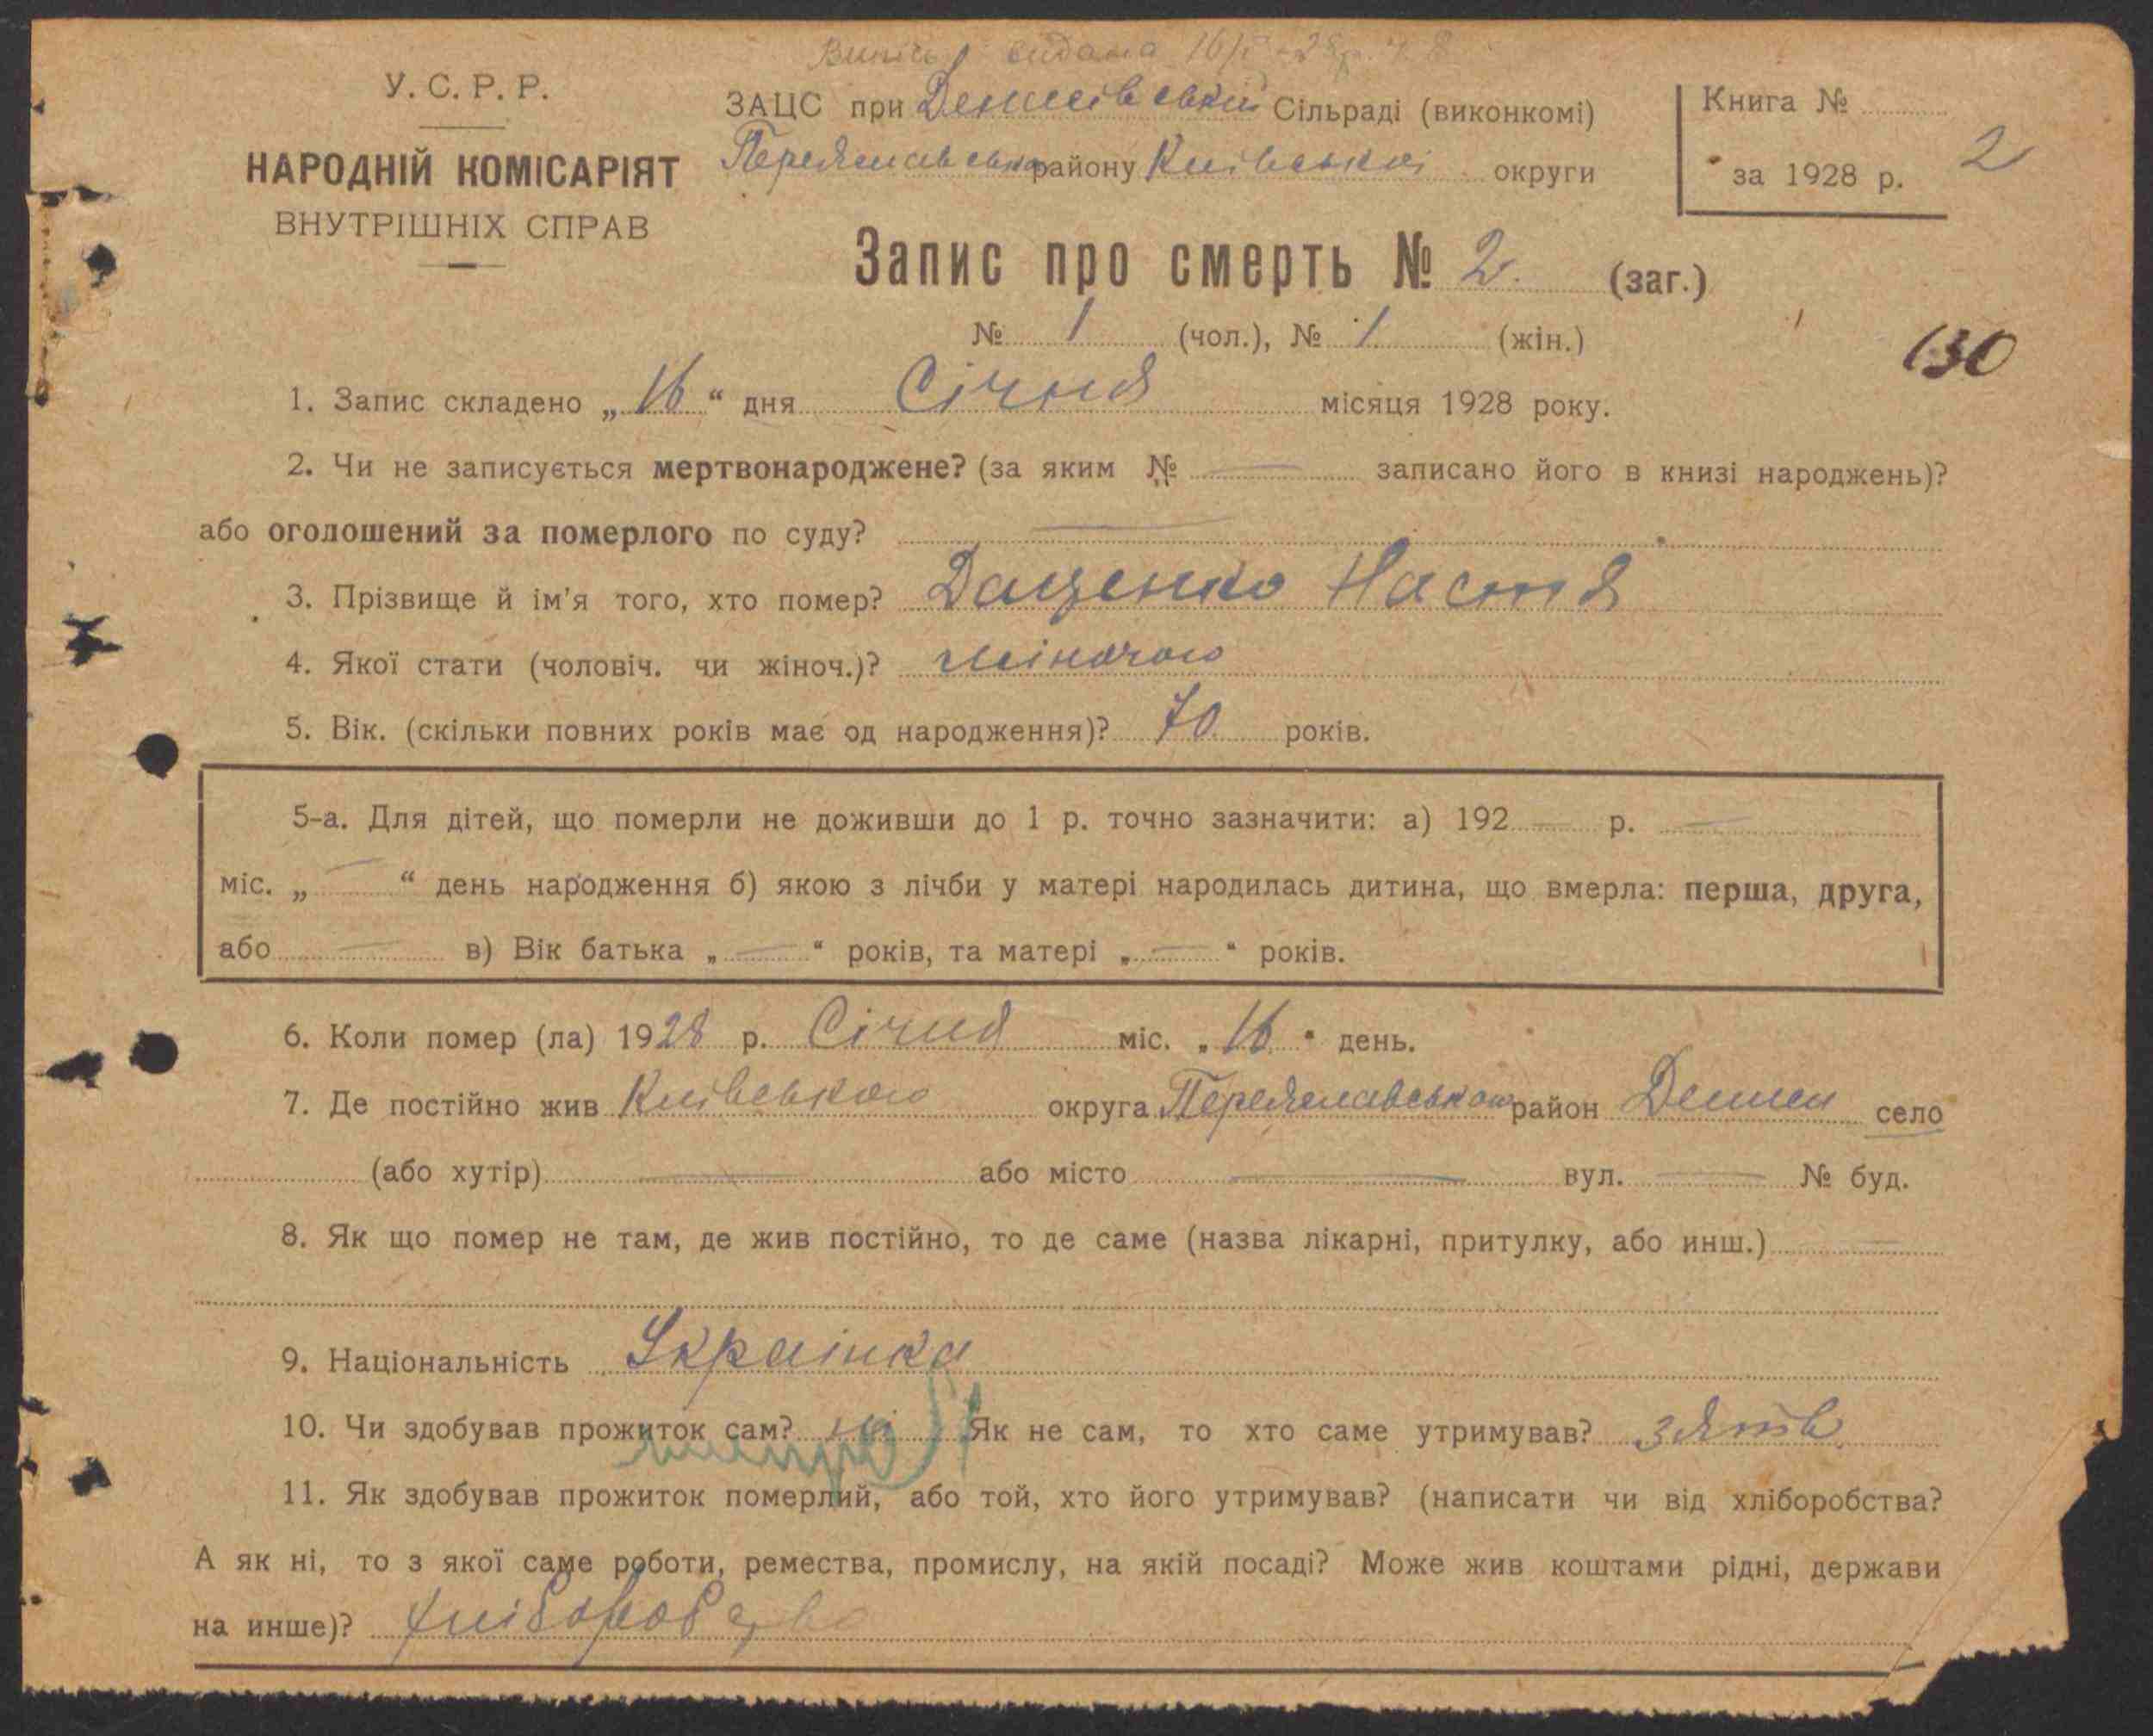 Випись видана 16/I-28р. ч. 8
У. С. Р. Р.
НАРОДНІЙ КОМІСАРІЯТ
ВНУТРІШНІХ СПРАВ
ЗАЦС при Демківській Сільраді (виконкомі)
Переяславського району Київської округи
Книга №
за 1928 р.
2
Запис про смерть № 2. (заг.)
№ 1 (чол.), № 1 (жін.)
130
1. Запис складено „16“ дня Січня місяця 1928 року.
2. Чи не записується мертвонароджене? (за яким № — записано його в книзі народжень)?
або оголошений за померлого по суду? —
3. Прізвище й ім'я того, хто помер? Даценко Настя
4. Якої стати (чоловіч. чи жіноч.)? жіночою
5. Вік. (скільки повних років має од народження)? 70 років.
5-а. Для дітей, що померли не доживши до 1 р. точно зазначити: а) 192 — р. —
міс. „ — “ день народження б) якою з лічби у матері народилась дитина, що вмерла: перша, друга,
або — в) Вік батька „ — “ років, та матері „ — “ років.
6. Коли помер (ла) 1928 р. Січня міс. „16“ день.
7. Де постійно жив Київською округа Переяславською район Демки село
(або хутір) — або місто — вул. — № буд.
8. Як що помер не там, де жив постійно, то де саме (назва лікарні, притулку, або инш.) —
9. Національність Українка
10. Чи здобував прожиток сам? ні Як не сам, то хто саме утримував? зять
11. Як здобував прожиток померлий, або той, хто його утримував? (написати чи від хліборобства?
А як ні, то з якої саме роботи, ремества, промислу, на якій посаді? Може жив коштами рідні, держави
на инше)? хліборобство